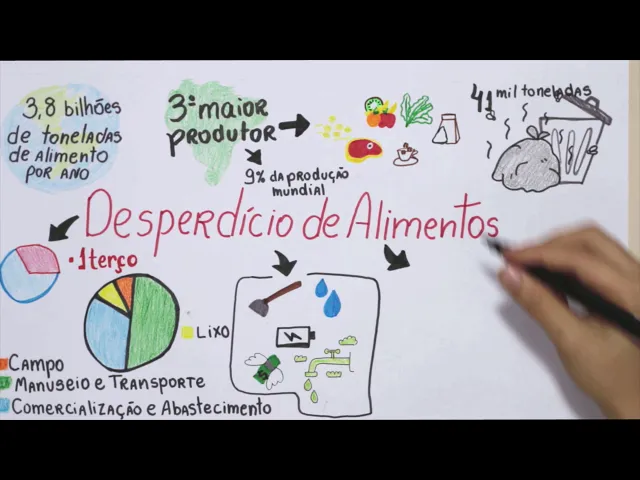 3,8 bilhões
de toneladas
de alimento
por ano
3ª maior
produtor
9% da produção
mundial
41 mil toneladas
Desperdício de Alimentos
• 1 terço
Lixo
Campo
Manuseio e Transporte
Comercialização e Abastecimento